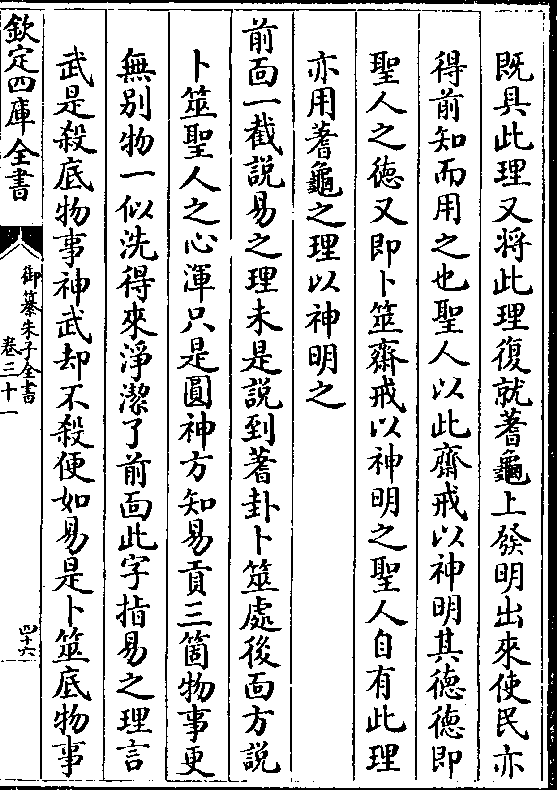 既具此理又將此理復就蓍龜上發明出來使民亦
得前知而用之也聖人以此齋戒以神明其德德即
聖人之德又即卜筮齋戒以神明之聖人自有此理
亦用蓍龜之理以神明之
前面一截說易之理未是說到蓍卦卜筮處後面方說
卜筮聖人之心渾只是圓神方知易貢三箇物事更
無别物一似洗得來淨潔了前面此字指易之理言
武是殺底物事神武却不殺便如易是卜筮底物事
欽定四庫全書
御纂朱子全書
卷三十一
四十六